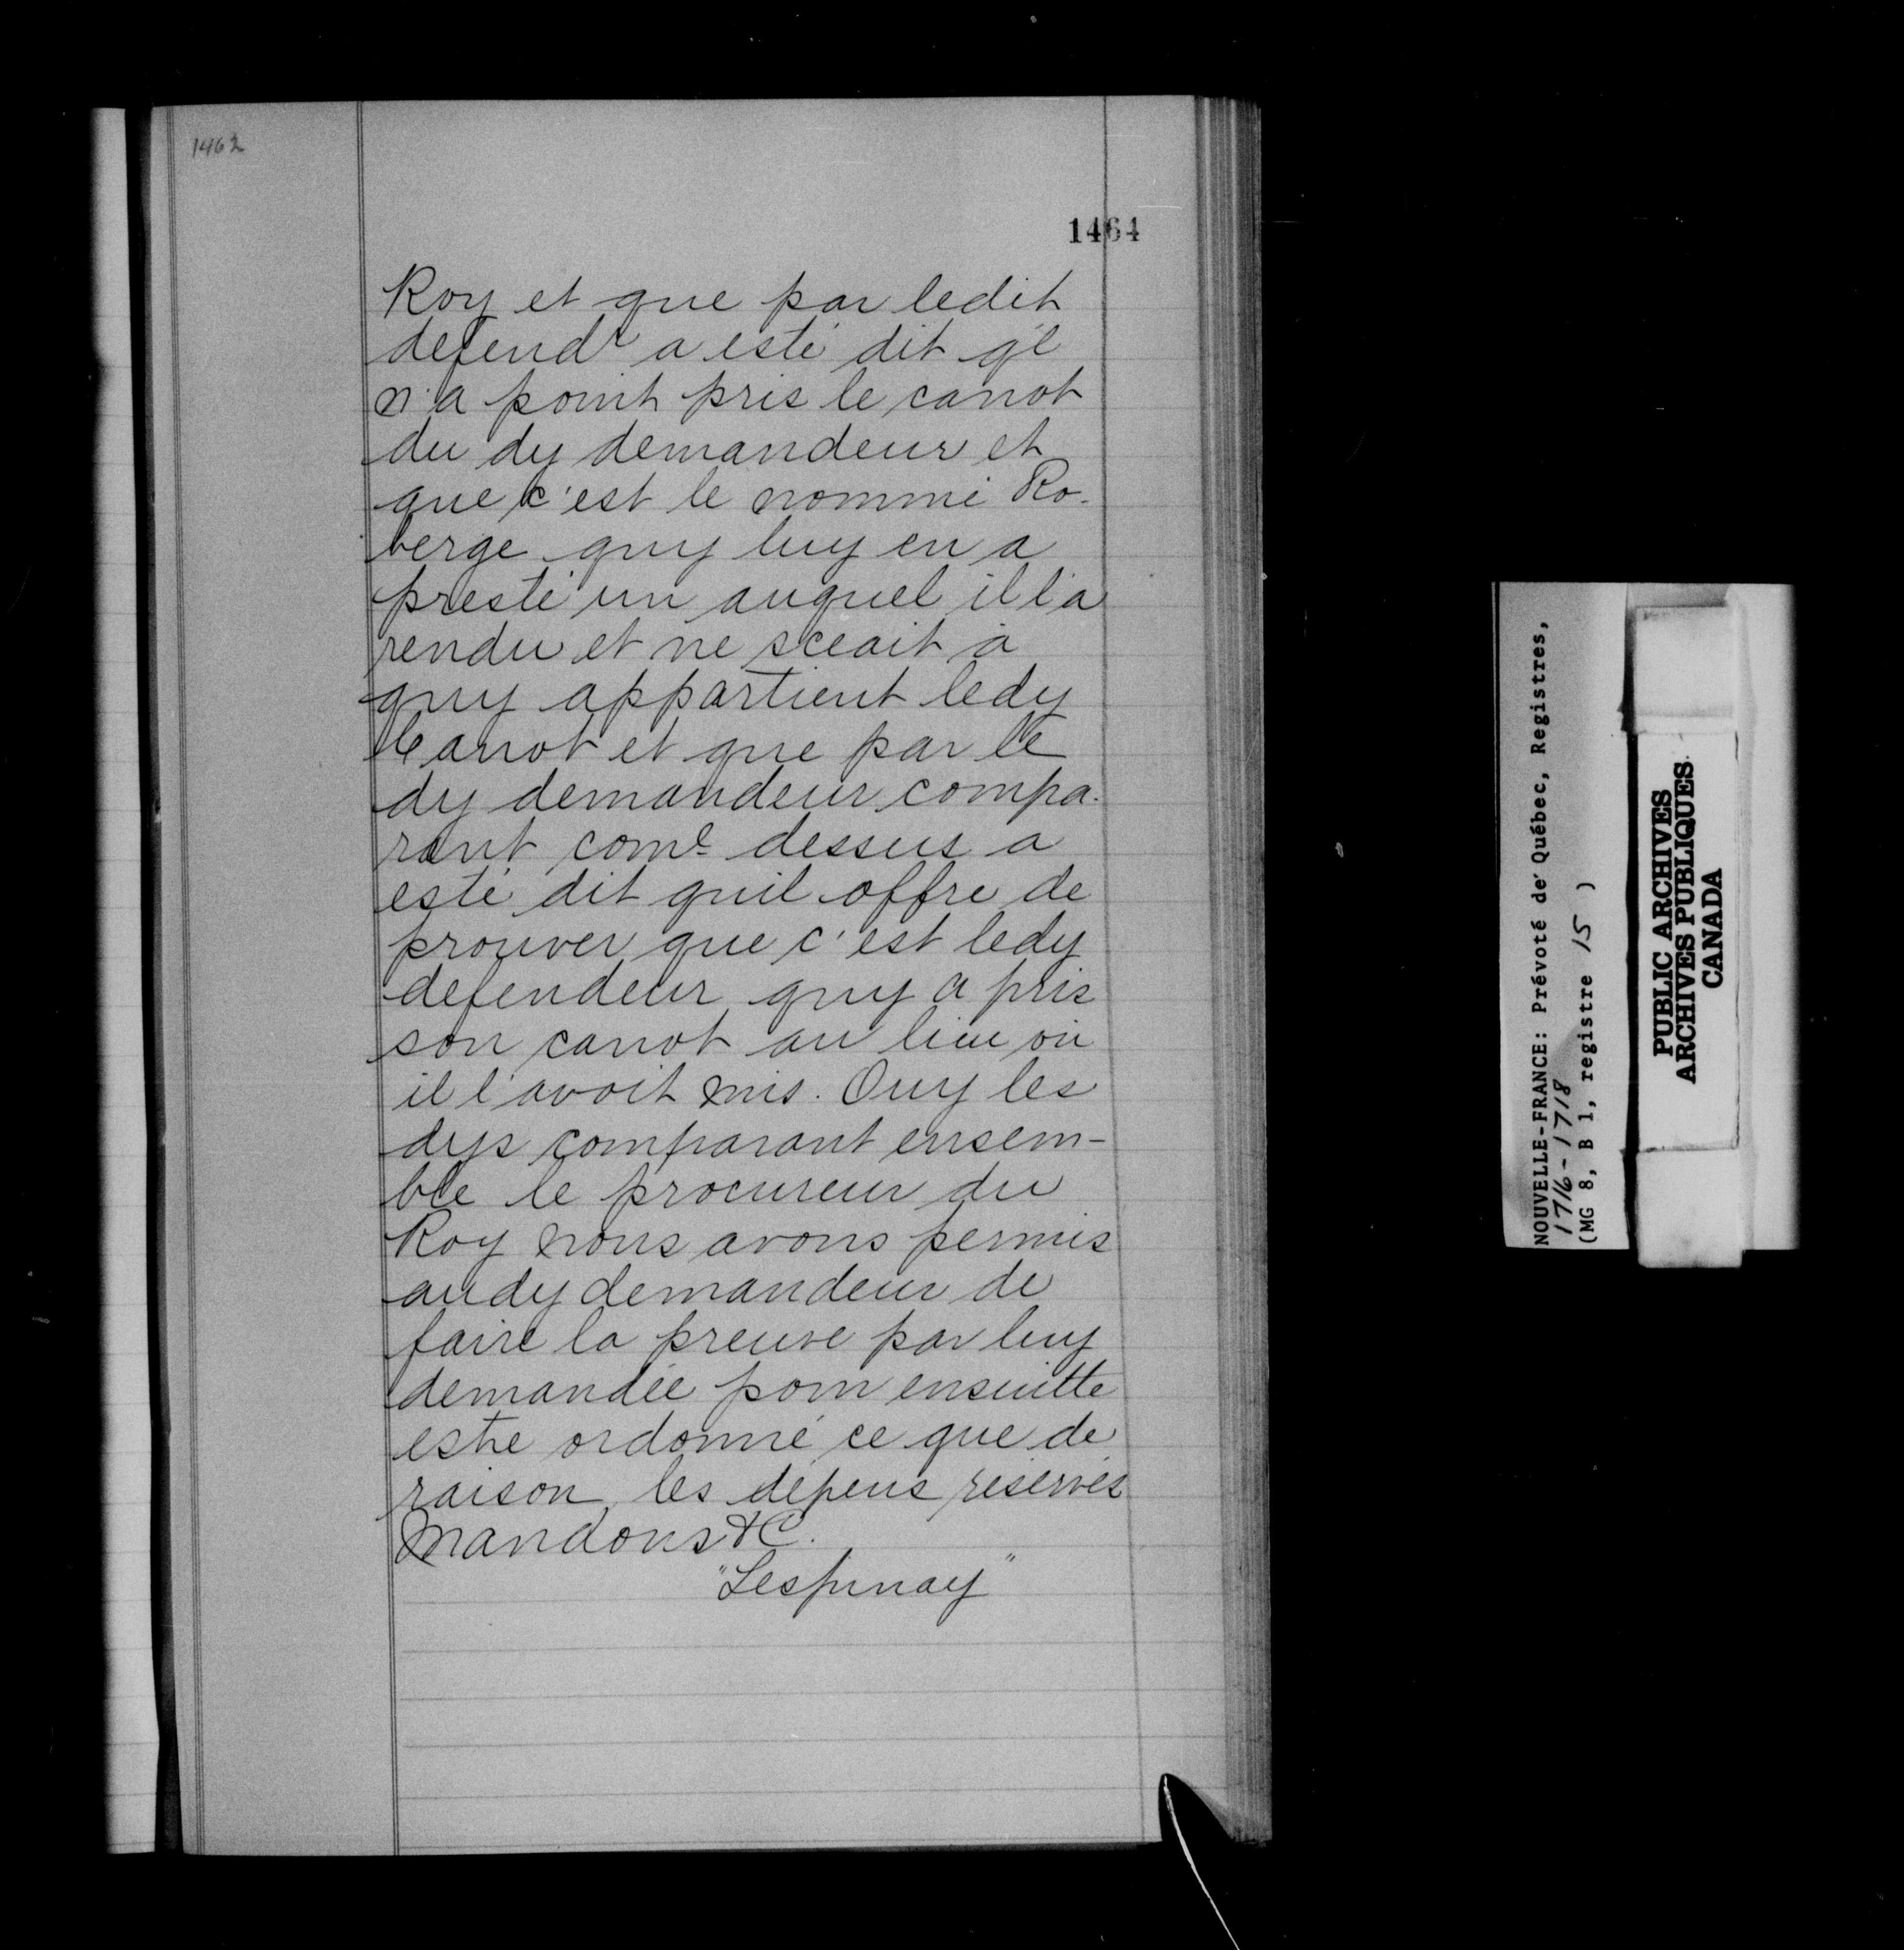 1462
1464
Roy et que par ledit
defendr a esté dit q'l
n'a point pris le canot
du dy demandeur et
que c'est le nommé Ro-
berge quy luy en a
presté un auquel il l'a
rendu et ne sceait à
quy appartient ledy
Canot et que par le
dy demandeur compa-
rant come dessus a
esté dit quil offre de
prouver que c'est ledy
defendeur quy a pris
son canot au lieu où
il l'avoit mis. Ouy les
dys comparant ensem-
ble le procureur du
Roy nous avons permis
audy demandeur de
faire la preuve par luy
demandée pour ensuitte
estre ordonné ce que de
raison, les dépens réservés
Mandons &C.
"Lespinay"
NOUVELLE-FRANCE: Prévoté de Québec, Registres,
1716-1718
(MG 8, B 1, registre 15 )
PUBLIC ARCHIVES
ARCHIVES PUBLIQUES
CANADA